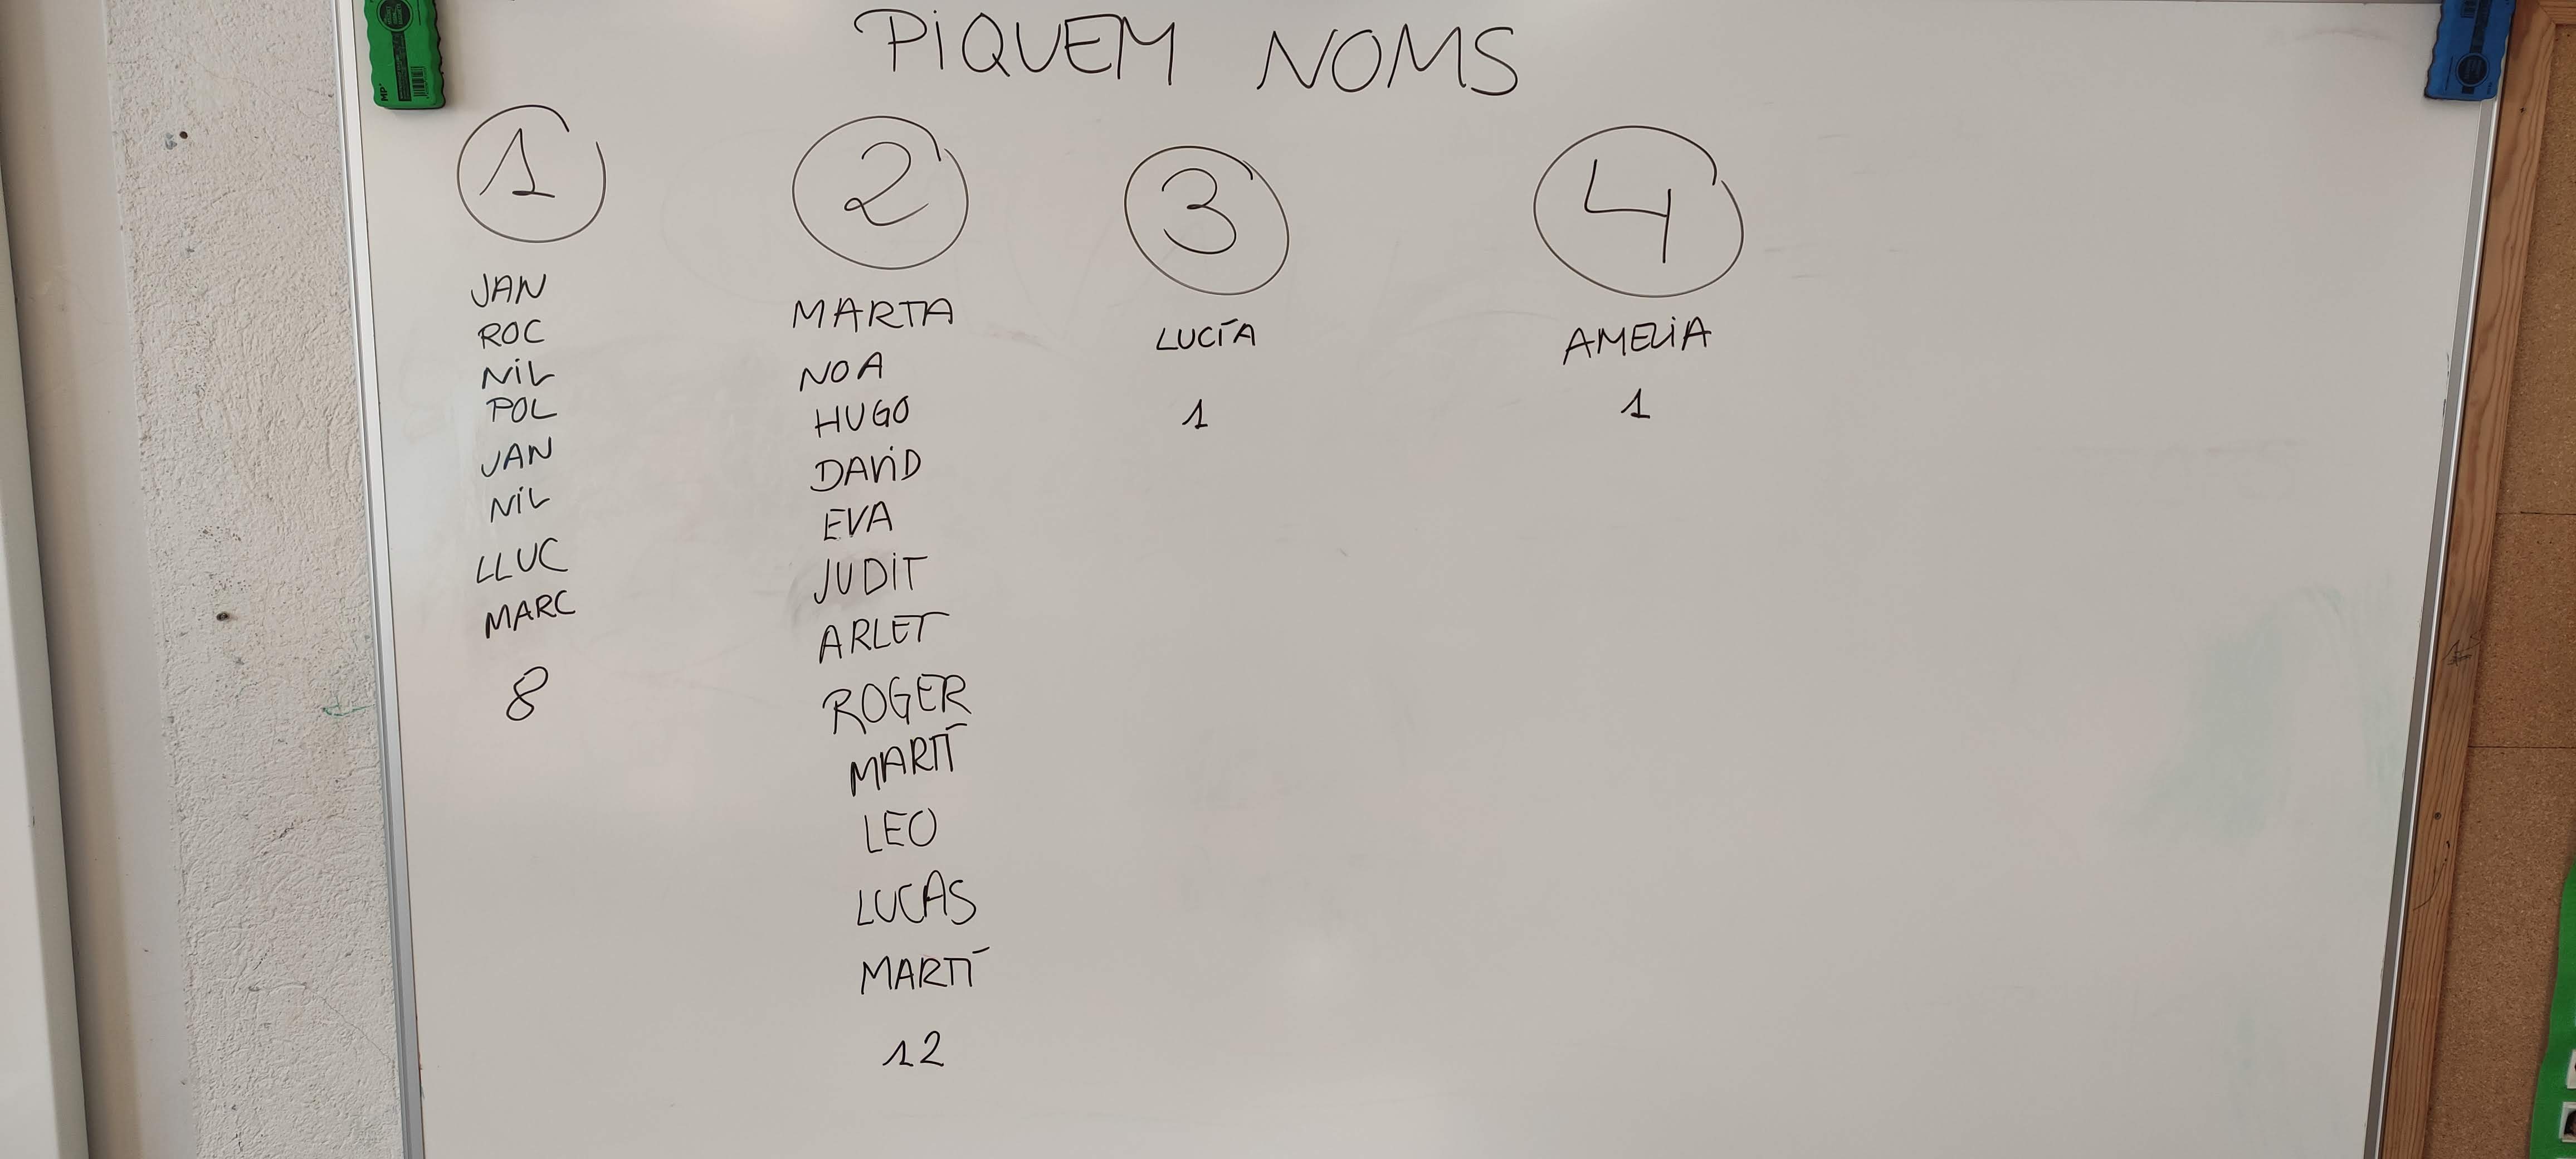 PIQUEM NOMS
1
JAN
ROC
NIL
POL
JAN
NIL
LLUC
MARC
8
2
MARTA
NOA
HUGO
DAVID
EVA
JUDIT
ARLET
ROGER
MARTÍ
LEO
LUCAS
MARTÍ
12
3
LUCÍA
1
4
AMELIA
1